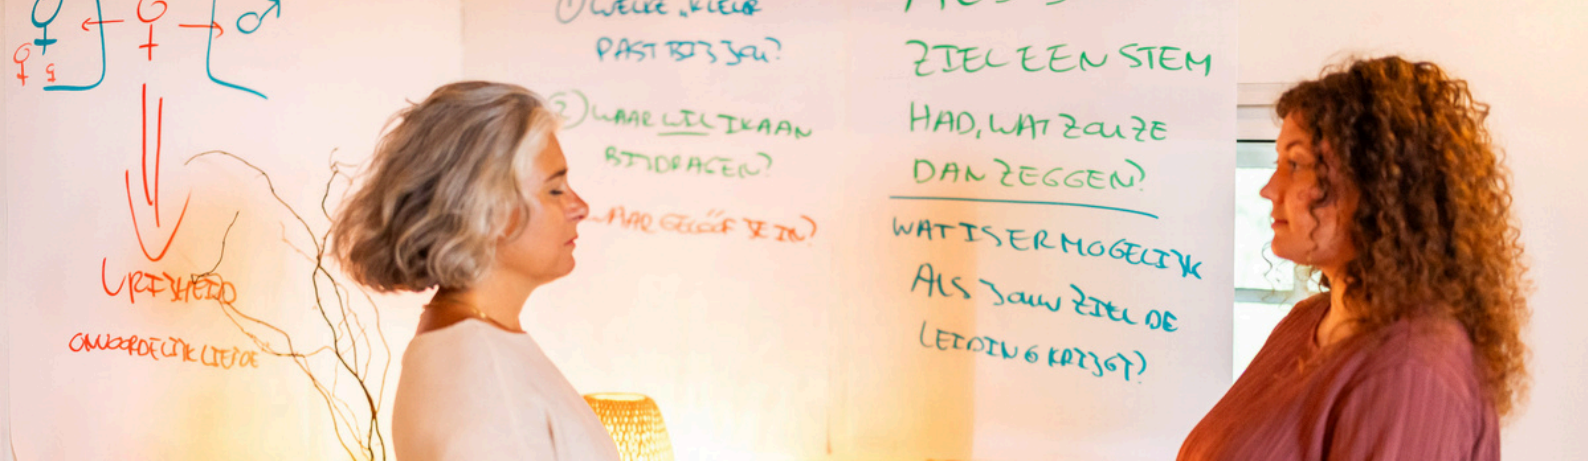 VRIJHEID
ONVOORDELIJK LIEFDE
① WELKE "KLEUR
PAST BIJ JOU?
② WAAR WIL IK AAN
BIJDRAGEN?
WAAR GELOOF JE IN?
ZIEL EEN STEM
HAD, WAT ZOU ZE
DAN ZEGGEN?
WAT IS ER MOGELIJK
ALS JOUW ZIEL DE
LEIDING KRIJGT?